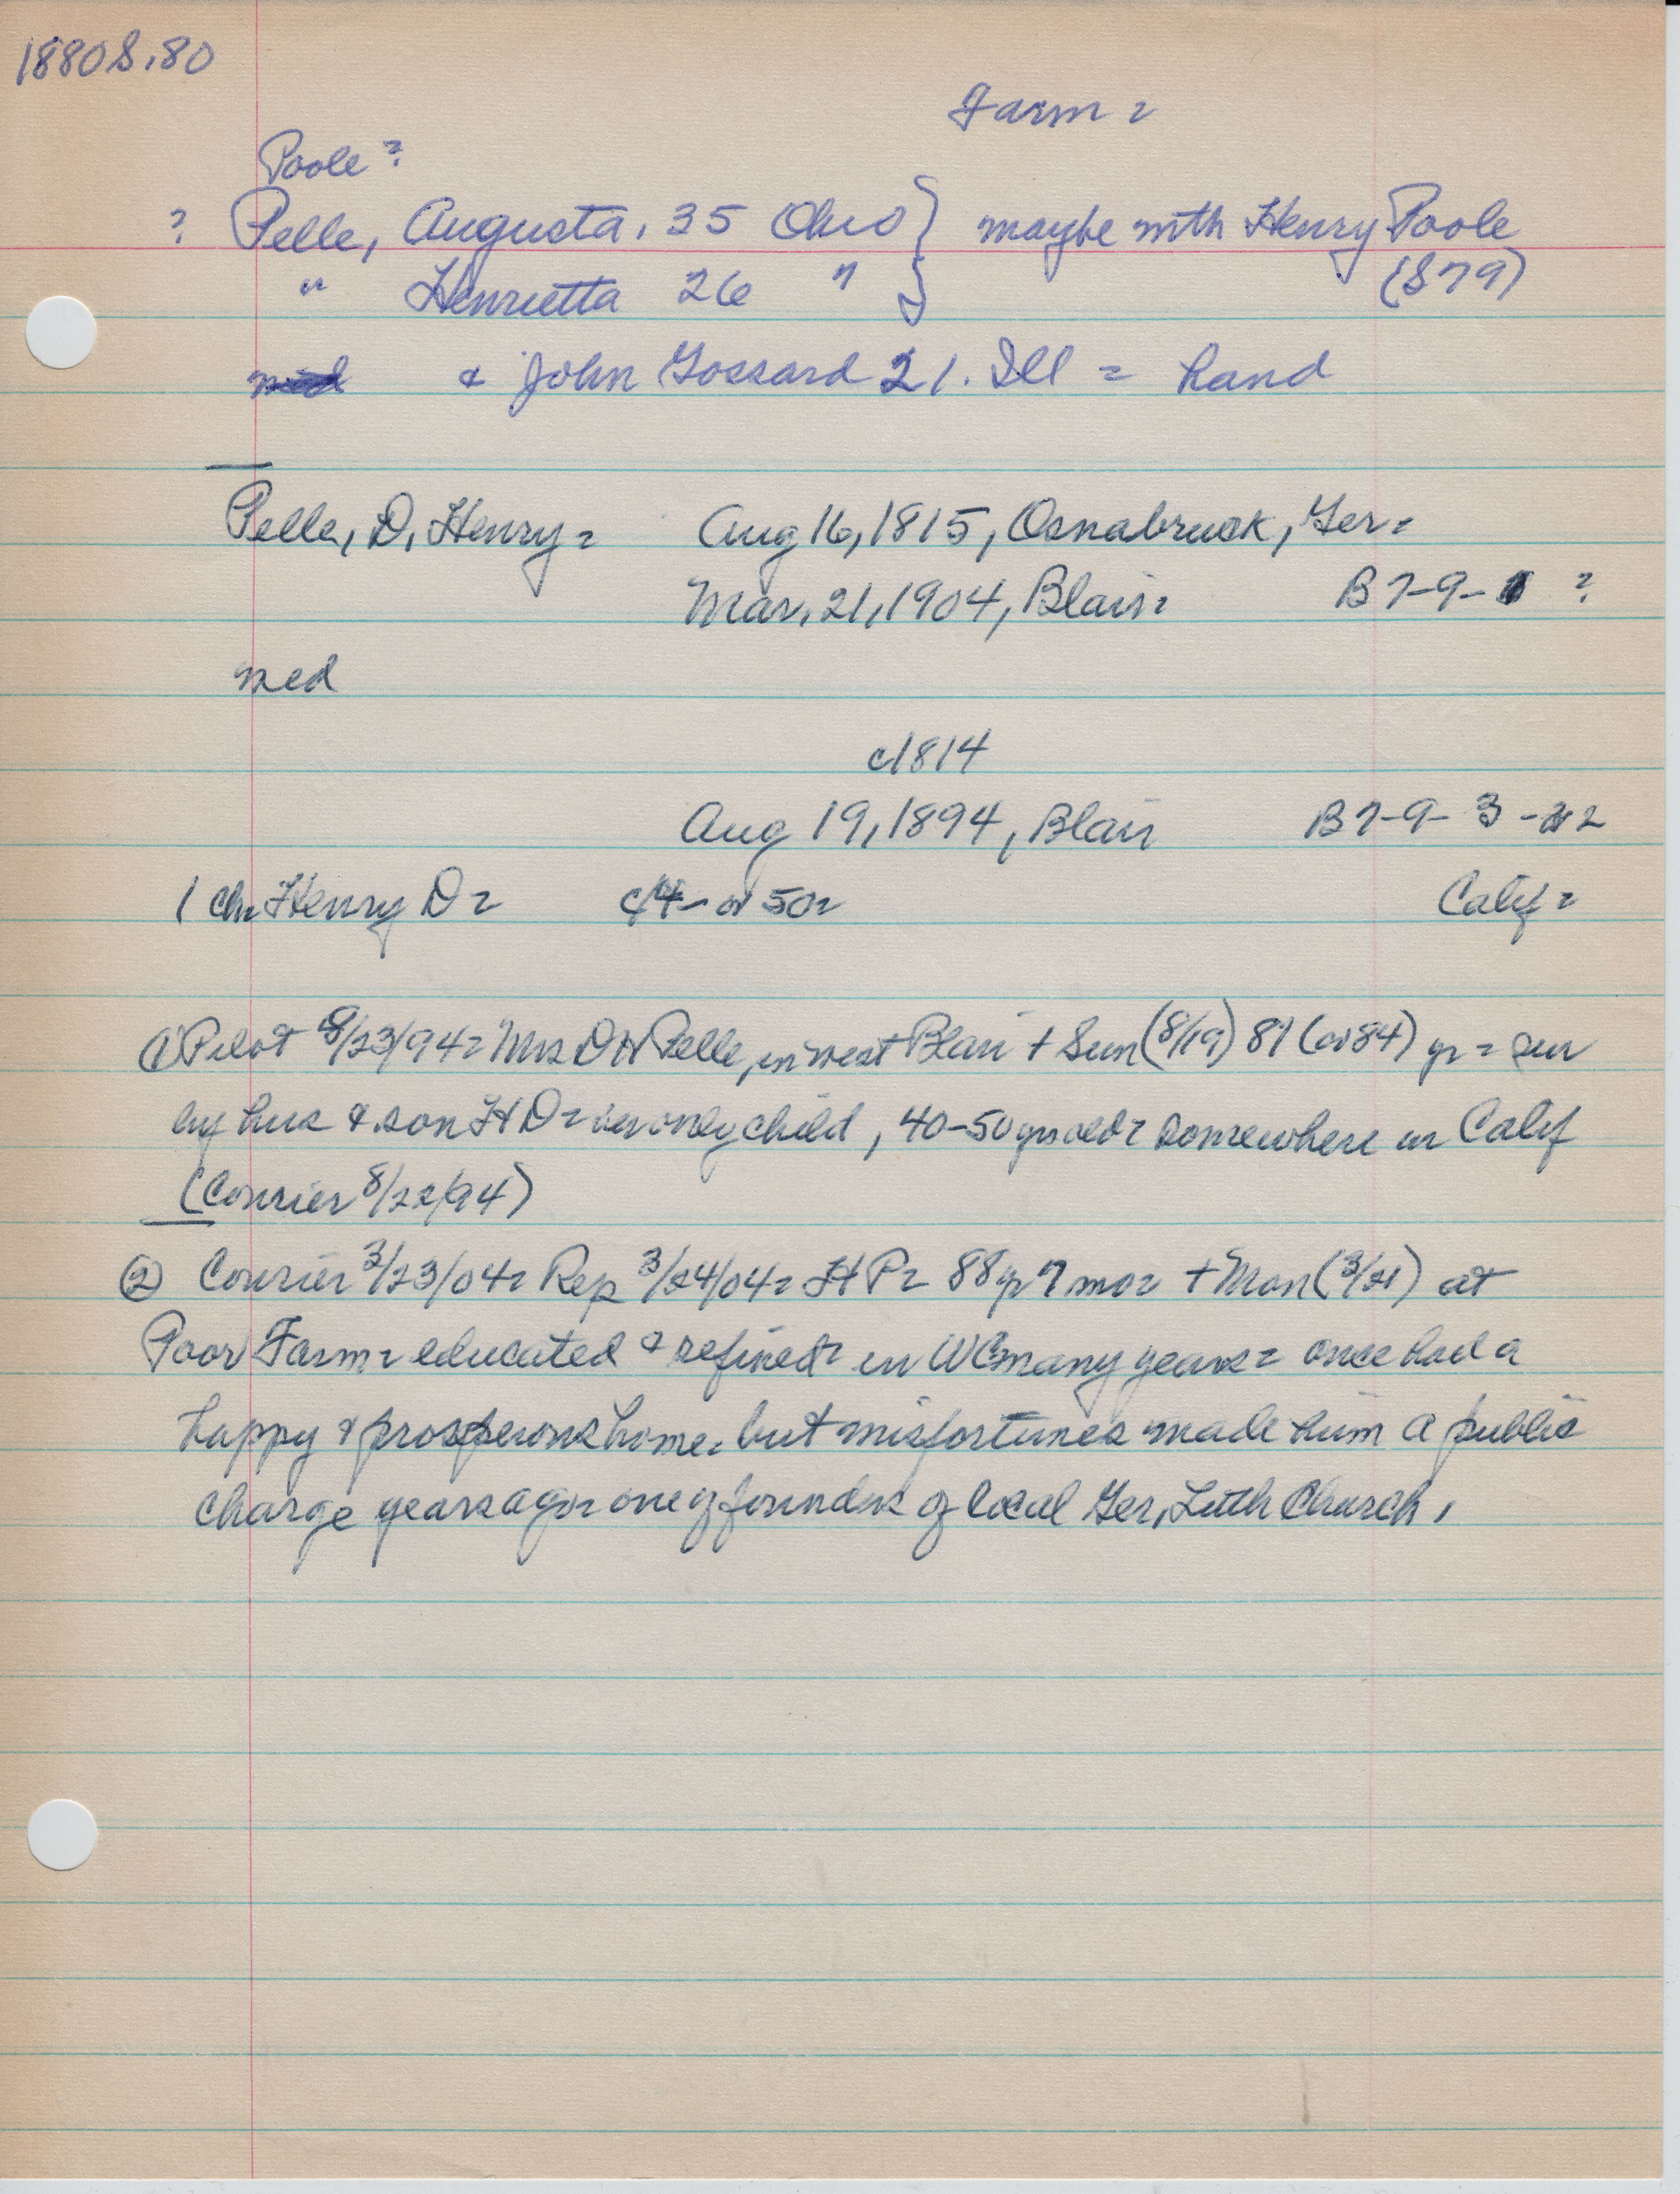 1880 S.80
Farm =
Poole ?
? Pelle, Augusta, 35 Ohio } maybe with Henry Poole
" Henrietta 26 " } (S79)
& John Gossard 21. Ill = hand
Pelle, D. Henry = Aug 16, 1815, Osnabruck, Ger =
Mar. 21, 1904, Blair = B7-9- ?
med
c1814
Aug 19, 1894, Blair B7-9-3-2
1 ch = Henry D = c4- or 50 = Calif =
(1) Pilot 8/23/94 = Mrs D H Pelle, in west Blair + Sun (8/19) 81 (or 84) yr = sur
by hus & son H D = her only child, 40-50 yrs old = somewhere in Calif
(Courier 8/22/94)
(2) Courier 3/23/04 = Rep 3/24/04 = H P = 88 yr 7 mo = + Mon (3/21) at
Poor Farm = educated & refined = in WC many years = once had a
happy & prosperous home = but misfortunes made him a public
charge years ago = one of founders of local Ger, Luth Church,